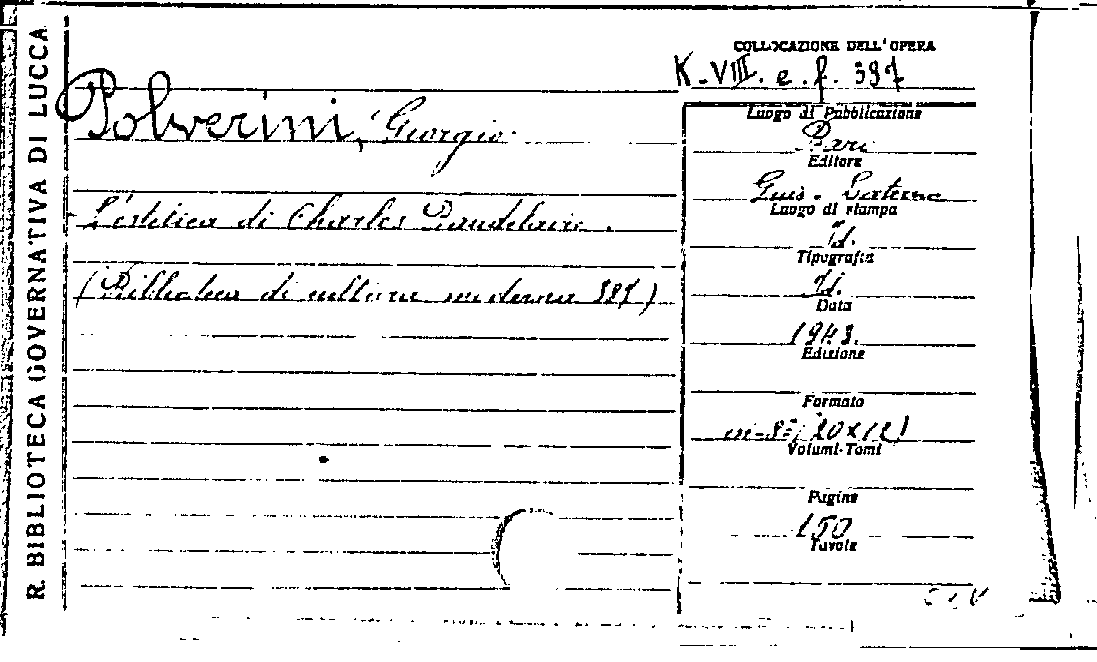 R. BIBLIOTECA GOVERNATIVA DI LUCCA
COLLOCAZIONE DELL'OPERA
K-VIII. e. f. 397
Polverini, Giorgio.
L'estetica di Charles Baudelaire.
(Biblioteca di cultura moderna 387)
Luogo di Pubblicazione
Bari
Editore
Gius. Laterza
Luogo di stampa
Id.
Tipografia
Id.
Data
1943.
Edizione
Formato
in-8°, (20x12)
Volumi-Tomi
Pagine
150
Tavole